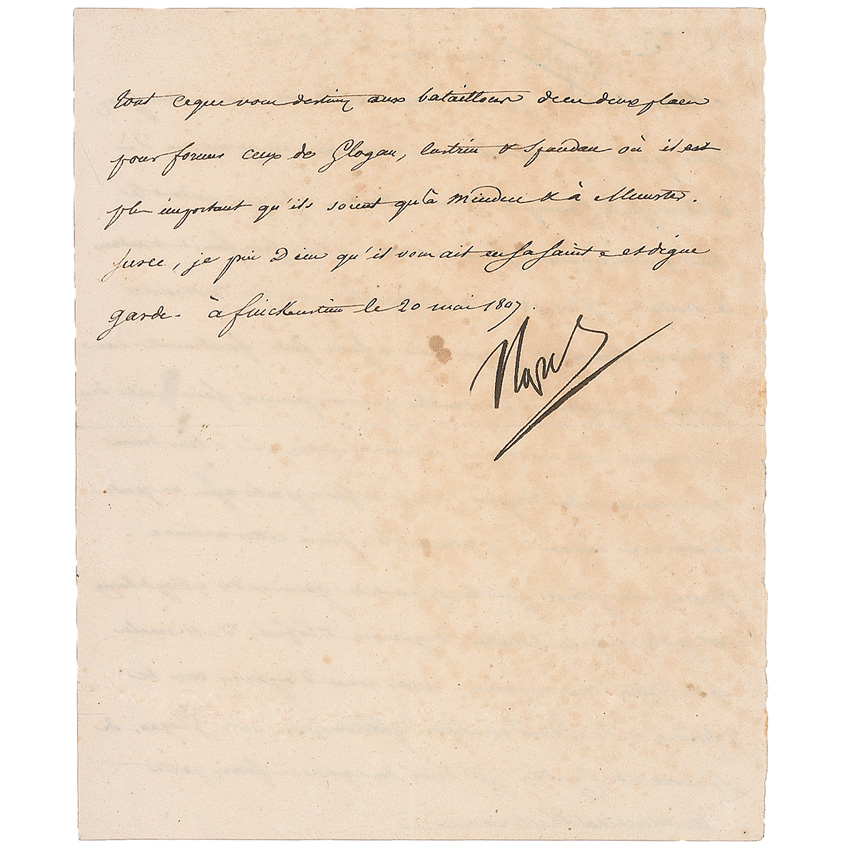 tout ceque vous destinez aux bataillons de ces deux places
pour former ceux de Glogau, Custrin & Spandau où il est
plus important qu'ils soient qu'à Minden & à Munster.
surce, je prie Dieu qu'il vous ait en sa sainte et digne
garde. à finckenstein le 20 mai 1807.
Nap